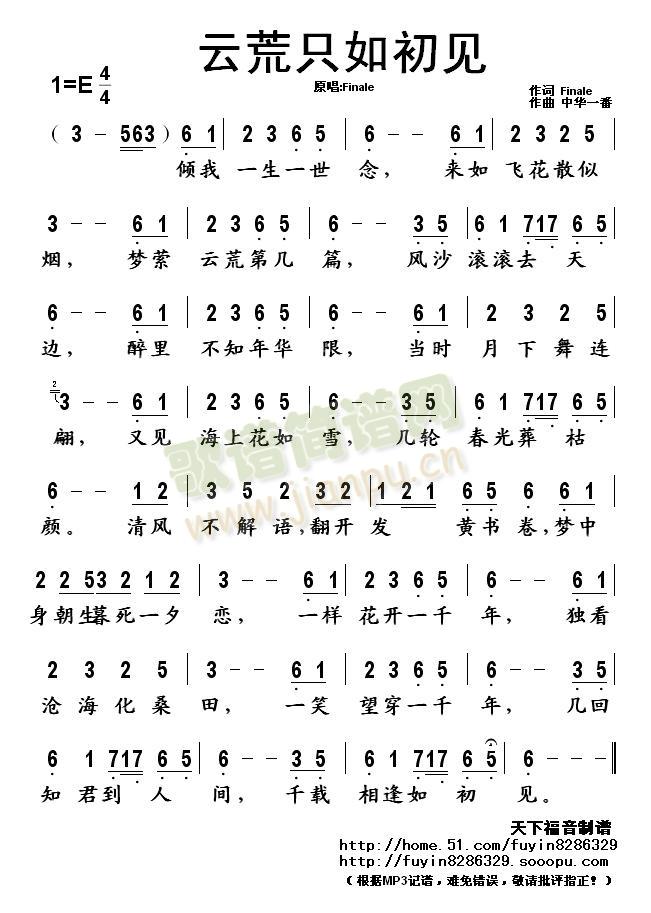 云荒只如初见
1=E 4/4
原唱:Finale
作词 Finale
作曲 中华一番
( 3 - 563 ) 6 1 | 2 3 6 5 | 6 - - 6 1 | 2 3 2 5 |
倾我 一生一世 念, 来如 飞花散似
3 - - 6 1 | 2 3 6 5 | 6 - - 3 5 | 6 1 717 6 5 |
烟, 梦萦 云荒第几 篇, 风沙 滚滚去 天
6 - - 6 1 | 2 3 6 5 | 6 - - 6 1 | 2 3 2 5 |
边, 醉里 不知年华 限, 当时 月下舞连
2 3 - - 6 1 | 2 3 6 5 | 6 - - 3 5 | 6 1 717 6 5 |
翩, 又见 海上花如 雪, 几轮 春光葬 枯
6 - - 1 2 | 3 5 2 3 2 | 1 2 1 6 5 6 6 1 |
颜。 清风 不解语,翻开 发 黄书卷,梦中
2 2 5 3 2 1 2 | 3 - - 6 1 | 2 3 6 5 | 6 - - 6 1 |
身朝生暮死一夕 恋, 一样 花开一千 年, 独看
2 3 2 5 | 3 - - 6 1 | 2 3 6 5 | 6 - - 3 5 |
沧海化桑 田, 一笑 望穿一千 年, 几回
6 1 717 6 5 | 6 - - 3 5 | 6 1 717 6 5 | 6 - - - ‖
知君到 人 间, 千载 相逢如 初 见。
歌谱简谱网
www.jianpu.cn
天下福音制谱
http://home.51.com/fuyin8286329
http://fuyin8286329.sooopu.com
(根据MP3记谱,难免错误,敬请批评指正!)